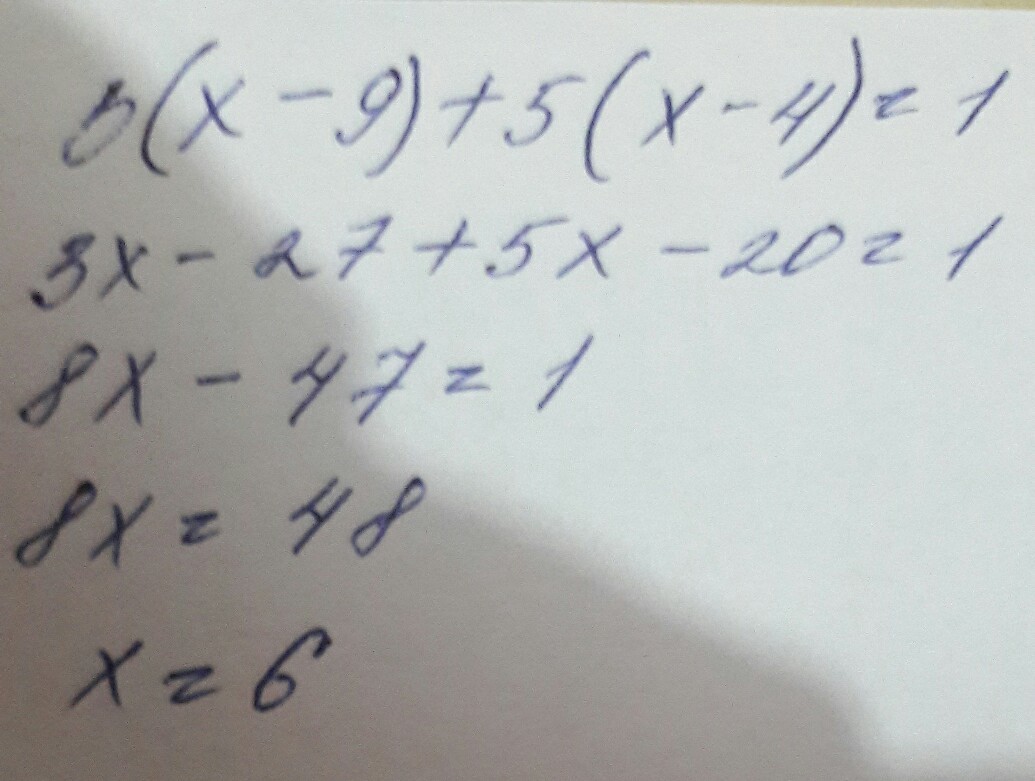 3(x-9)+5(x-4)=1
3x-27+5x-20=1
8x-47=1
8x=48
x=6